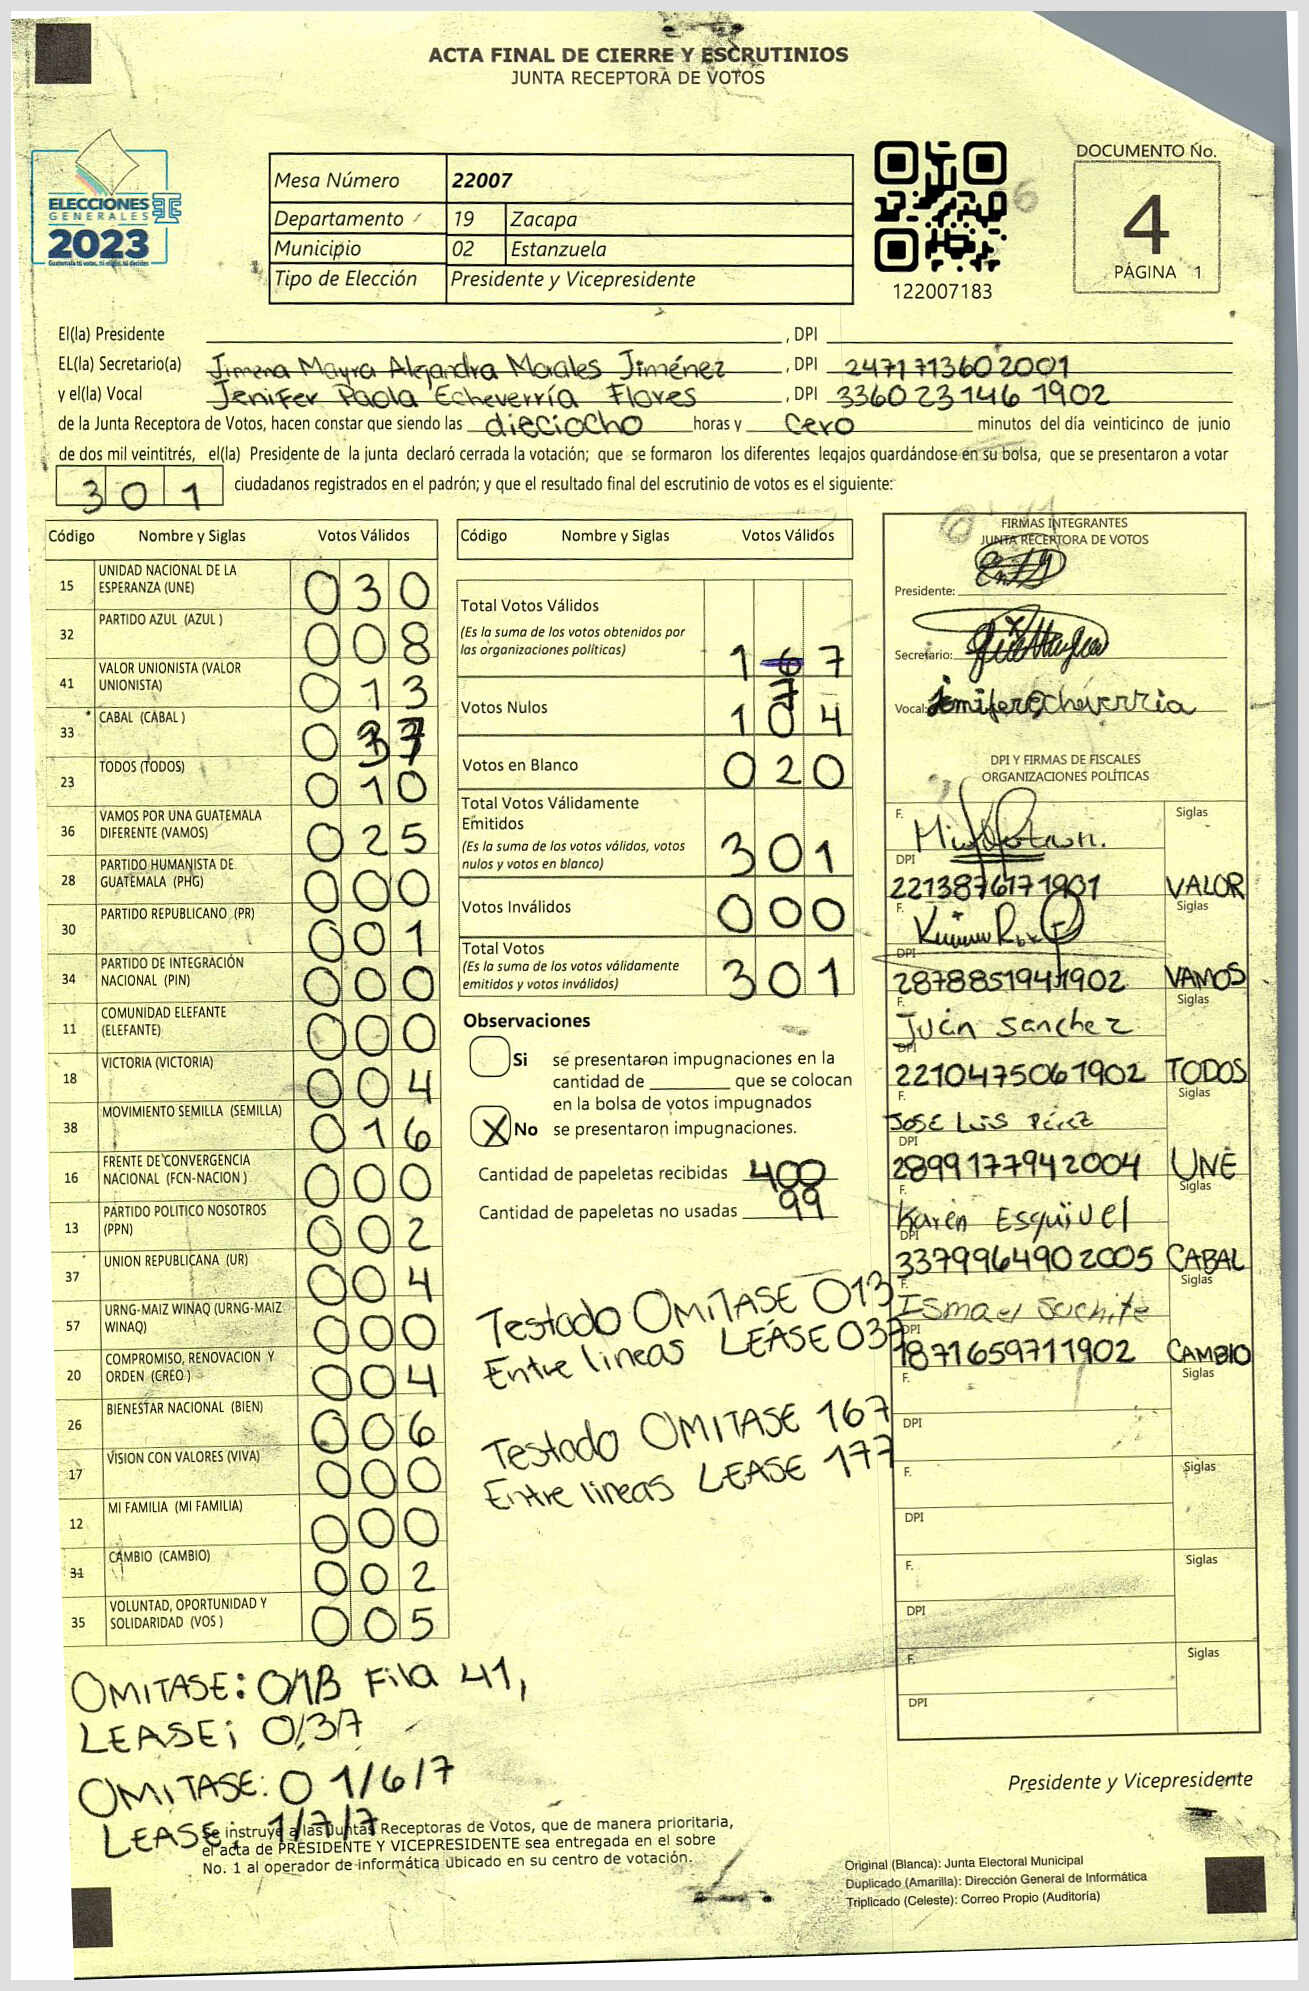 ACTA FINAL DE CIERRE Y ESCRUTINIOS
JUNTA RECEPTORA DE VOTOS
ELECCIONES
GENERALES
2023
Guatemala tú votas, tú eliges, tú decides
Mesa Número 22007
Departamento 19 Zacapa
Municipio 02 Estanzuela
Tipo de Elección Presidente y Vicepresidente
122007183
DOCUMENTO No.
4
PÁGINA 1
El(la) Presidente , DPI
EL(la) Secretario(a) Jimena Mayra Alejandra Morales Jiménez , DPI 2471713602001
y el(la) Vocal Jenifer Paola Echeverría Flores , DPI 3360231461902
de la Junta Receptora de Votos, hacen constar que siendo las dieciocho horas y cero minutos del día veinticinco de junio
de dos mil veintitrés, el(la) Presidente de la junta declaró cerrada la votación; que se formaron los diferentes legajos guardándose en su bolsa, que se presentaron a votar
301 ciudadanos registrados en el padrón; y que el resultado final del escrutinio de votos es el siguiente:
Código Nombre y Siglas Votos Válidos
15 UNIDAD NACIONAL DE LA ESPERANZA (UNE) 030
32 PARTIDO AZUL (AZUL ) 008
41 VALOR UNIONISTA (VALOR UNIONISTA) 013
33 CABAL (CABAL ) 037
23 TODOS (TODOS) 010
36 VAMOS POR UNA GUATEMALA DIFERENTE (VAMOS) 025
28 PARTIDO HUMANISTA DE GUATEMALA (PHG) 000
30 PARTIDO REPUBLICANO (PR) 001
34 PARTIDO DE INTEGRACIÓN NACIONAL (PIN) 000
11 COMUNIDAD ELEFANTE (ELEFANTE) 000
18 VICTORIA (VICTORIA) 004
38 MOVIMIENTO SEMILLA (SEMILLA) 016
16 FRENTE DE CONVERGENCIA NACIONAL (FCN-NACION ) 000
13 PARTIDO POLITICO NOSOTROS (PPN) 002
37 UNION REPUBLICANA (UR) 004
57 URNG-MAIZ WINAQ (URNG-MAIZ WINAQ) 000
20 COMPROMISO, RENOVACION Y ORDEN (CREO ) 004
26 BIENESTAR NACIONAL (BIEN) 006
17 VISION CON VALORES (VIVA) 000
12 MI FAMILIA (MI FAMILIA) 000
31 CAMBIO (CAMBIO) 002
35 VOLUNTAD, OPORTUNIDAD Y SOLIDARIDAD (VOS ) 005
OMITASE: 0/1/3 Fila 41,
LEASE; 0/3/7
OMITASE: 0 1/6/7
LEASE; 1/7/7
Se instruye a las Juntas Receptoras de Votos, que de manera prioritaria,
el acta de PRESIDENTE Y VICEPRESIDENTE sea entregada en el sobre
No. 1 al operador de informática ubicado en su centro de votación.
Código Nombre y Siglas Votos Válidos
Total Votos Válidos
(Es la suma de los votos obtenidos por
las organizaciones políticas) 1 6 7
7
Votos Nulos 104
Votos en Blanco 020
Total Votos Válidamente
Emitidos
(Es la suma de los votos válidos, votos
nulos y votos en blanco) 301
Votos Inválidos 000
Total Votos
(Es la suma de los votos válidamente
emitidos y votos inválidos) 301
Observaciones
Si se presentaron impugnaciones en la
cantidad de que se colocan
en la bolsa de votos impugnados
X No se presentaron impugnaciones.
Cantidad de papeletas recibidas 400
Cantidad de papeletas no usadas 99
Testado OMITASE 013
Entre lineas LEASE 037
Testado OMITASE 167
Entre lineas LEASE 177
FIRMAS INTEGRANTES
JUNTA RECEPTORA DE VOTOS
Presidente:
Secretario:
Vocal: Jenifer Echeverria
DPI Y FIRMAS DE FISCALES
ORGANIZACIONES POLÍTICAS
F. Siglas
DPI
2213876171901 VALOR
F. Siglas
DPI
2878851941902 VAMOS
F. Juan Sanchez Siglas
DPI
2210475061902 TODOS
F. Siglas
JOSE LUIS Pérez
DPI
2899177942004 UNE
F. Siglas
Karen Esquivel
DPI
3379964902005 CABAL
F. Siglas
Ismael Suchite
DPI
1871659711902 CAMBIO
F. Siglas
DPI
F. Siglas
DPI
F. Siglas
DPI
F. Siglas
DPI
Presidente y Vicepresidente
Original (Blanca): Junta Electoral Municipal
Duplicado (Amarilla): Dirección General de Informática
Triplicado (Celeste): Correo Propio (Auditoría)